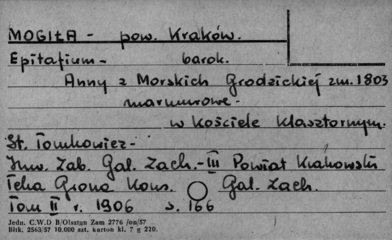 MOGIŁA - pow. Kraków.
Epitafium - barok.
Anny z Morskich Grodzickiej zm. 1803
marmurowe.
w kościele klasztornym.
St. Tomkowicz -
Inw. Zab. Gal. Zach. - III Powiat Krakowski
Teka Grona Kons. Gal. Zach.
Tom II r. 1906 s. 166
Jedn. C.W.D B/Olsztyn Zam 2776 /on/57
Błtk. 2563/57 10.000 szt. karton kl. 7 g 220.